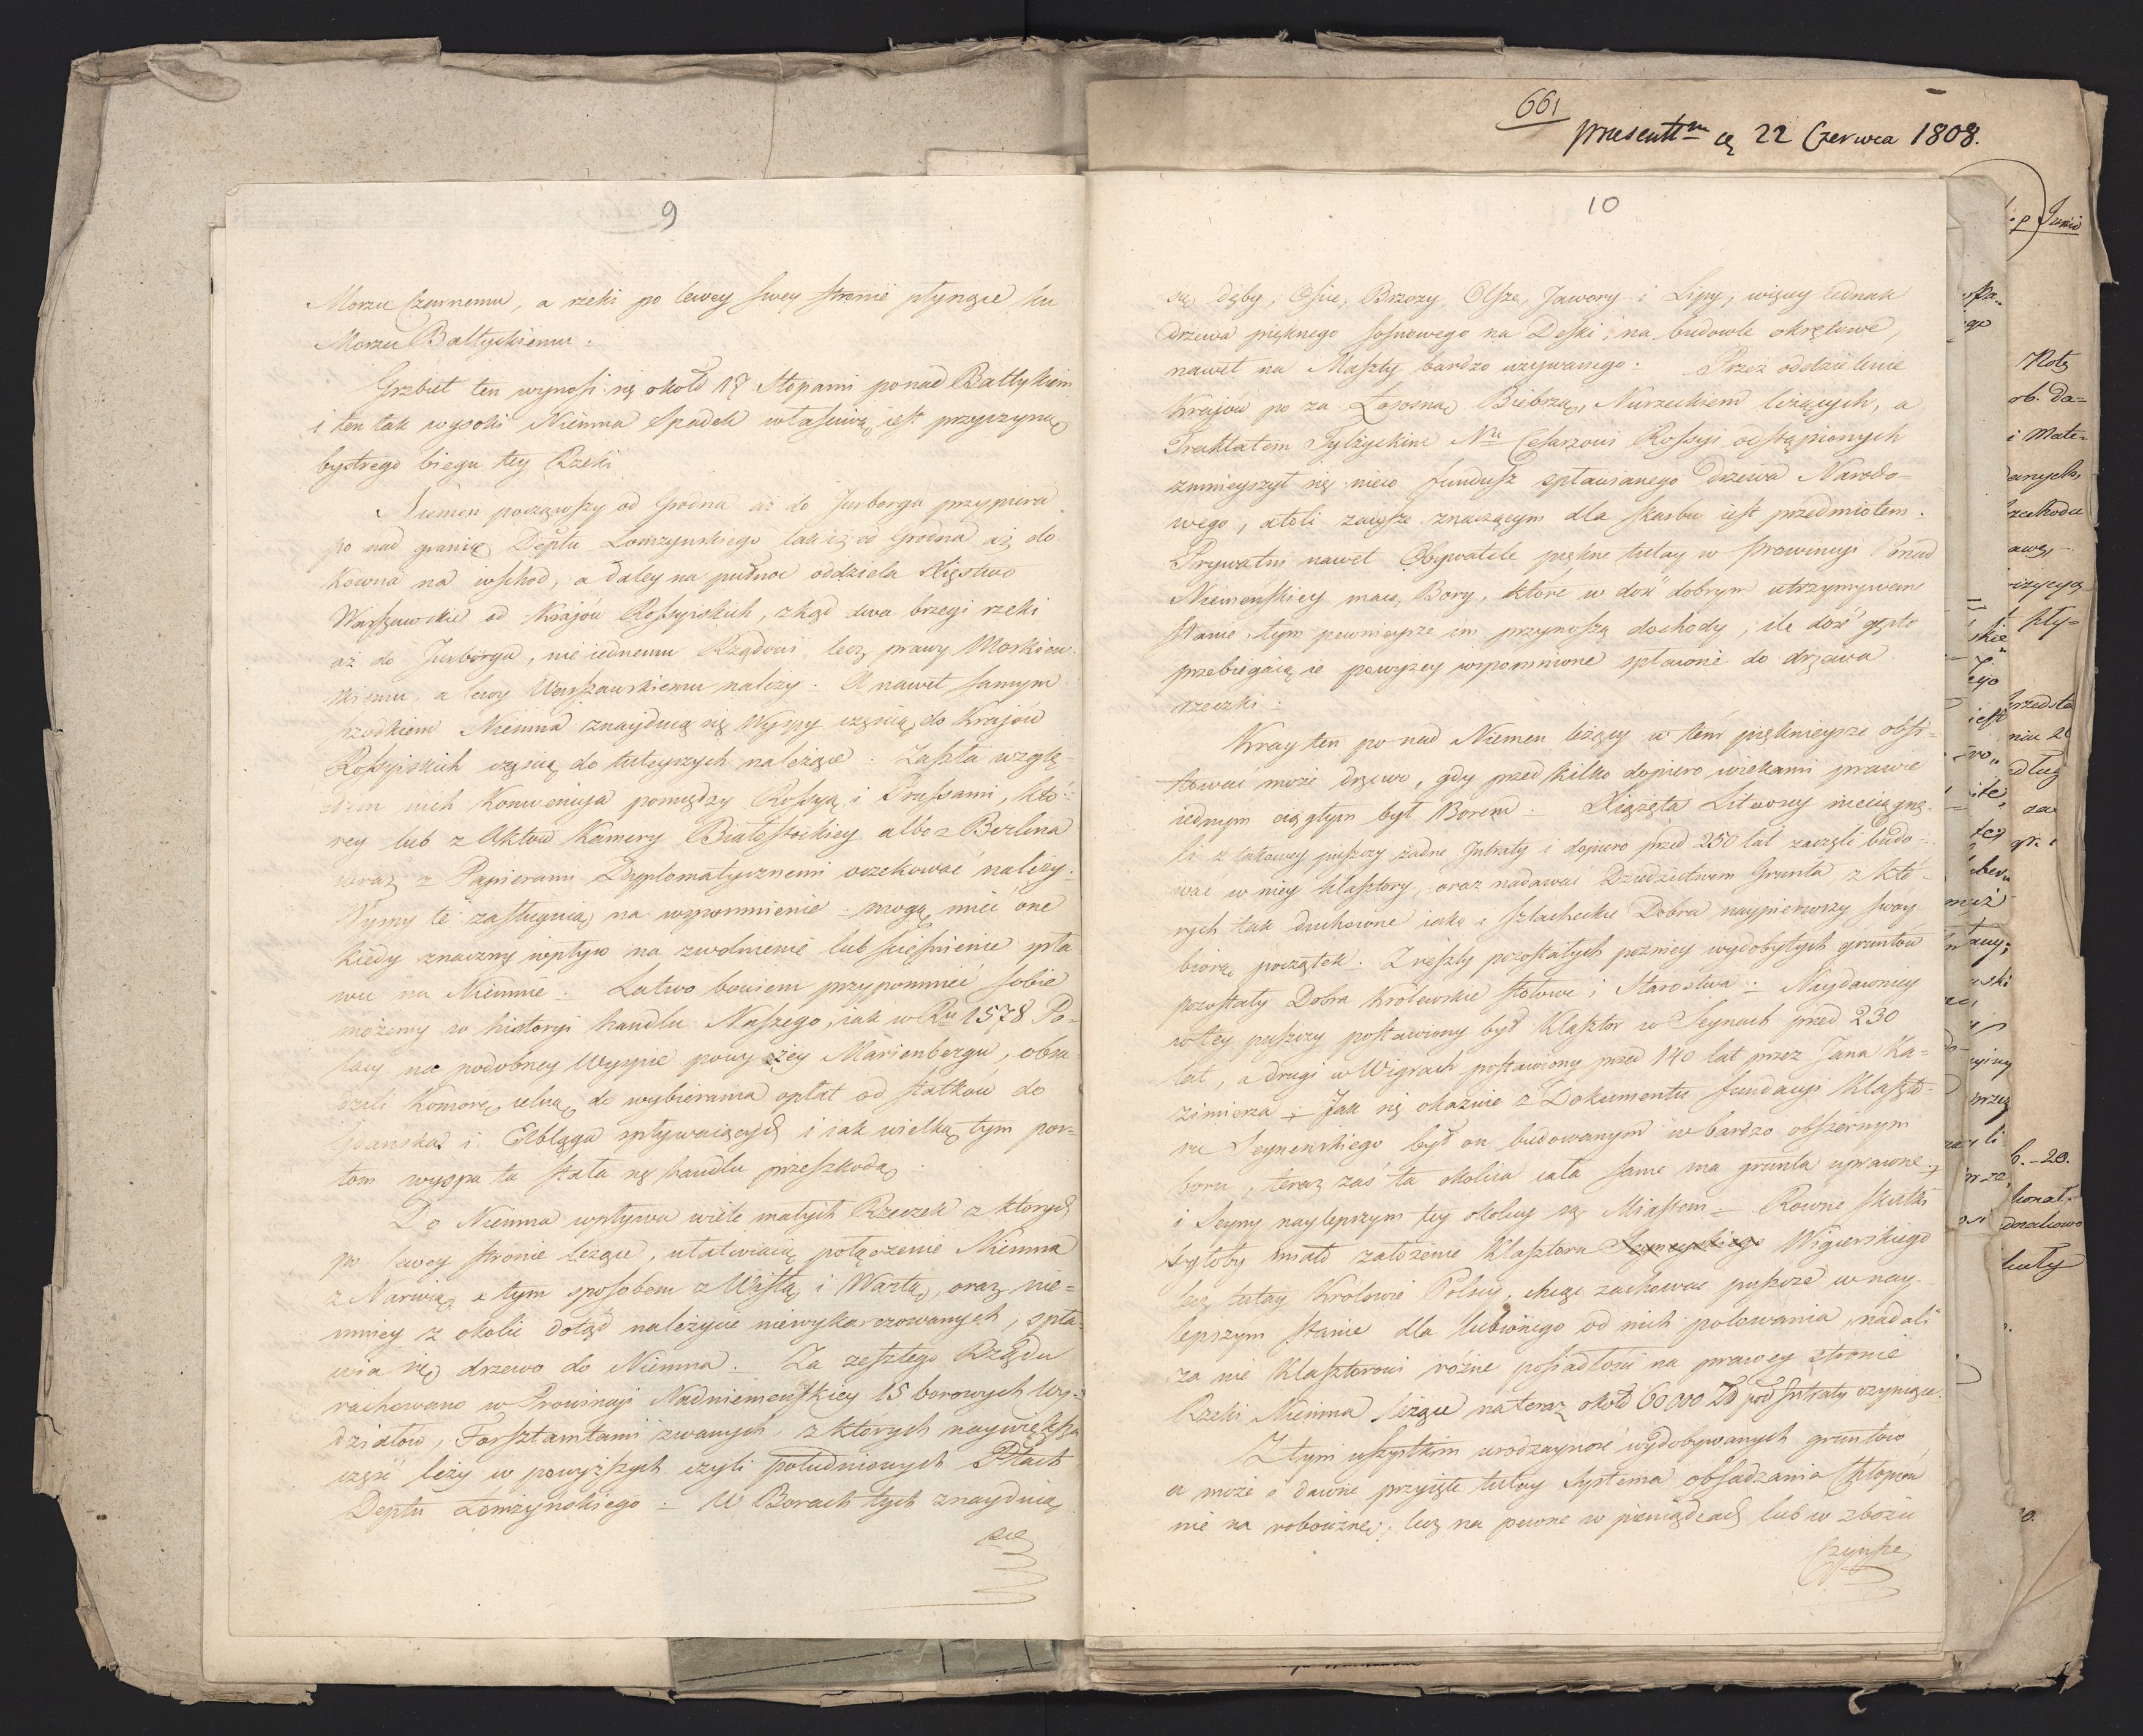 9
Morzu Czarnemu, a rzeki po lewey swey stronie płynące ku
Morzu Baltyckiemu.
Grzbiet ten wynosi się około 17 Stopami ponad Baltykiem
i ten tak wysoki Niemna Spadek właściwą iest przyczyną
bystrego biegu tey Rzeki
Niemen począwszy od Grodna aż do Jurborga przypiera
po nad granicę Deptu Łomżynskiego tak iż od Grodna aż do
Kowna na wschod, a daley na pułnoc oddziela Xięstwo
Warszawskie od Kraiów Rossyiskich, zkąd dwa brzegi rzeki
aż do Jurborga, nie iednemu Rządowi, lecz prawy Moskiew-
skiemu, a lewy Warszawskiemu należy. A nawet samym
srzodkiem Niemna znayduią się Wyspy częścią do Krajów
Rossyiskich częścią do tuteyszych należące. Zaszła wzglę-
dem nich Konwencyja pomiędzy Rossyą i Prussami, któ-
rey lub z Aktow Kamery Białostockiey albo z Berlina
wraz z Papierami Dyplomatycznemi oczekować należy.
Wyspy te zasługuią na wspomnienie mogą mieć one
kiedy znaczny wpływ na zwolnienie lub ścieśnienie spła-
wu na Niemnie. Łatwo bowiem przypomnieć sobie
możemy w historyi handlu Naszego, iak w Ru 1578 Po-
lacy na podobney Wyspie powyżey Marienbergu, obsa-
dzili Komorę celną do wybierania opłat od statkow do
Gdanska i Elbląga spływaiących i iak wielką tym por-
tom wyspa ta stała się handlu przeszkodą.
Do Niemna wpływa wiele małych Rzeczek z których
po lewey stronie leżące, ułatwiaią połączenie Niemna
z Narwią, a tym sposobem z Wisłą i Wartą, oraz nie-
mniey z okolic dotąd należycie niewykarczowanych, spła-
wia się drzewo do Niemna. Za zeszłego Rządu
rachowano w Prowincyi Nadniemenskiey 15 borowych Wy-
działow, Forsztamtami zwanych, z ktorych naywiększa
część leży w powyższych czyli południowych Ptach
Deptu Łomżynskiego. W Borach tych znayduią
się
661
presentt<sup>m</sup> 22 Czerwca 1808.
10
się dęby, Osice, Brzozy, Olsze, Jawory i Lipy, więcey iednak
drzewa pięknego sosnowego na Deski, na budowle okrętowe,
nawet na Maszty bardzo używanego. Przez oddzielenie
Krajow po za Łosośną, Biebrzą, Nurzeckiem leżących, a
Traktatem Tylżyckim Nu Cesarzowi Rossyi odstąpionych
zmnieyszył się nieco fundusz spławianego Drzewa Narodo-
wego, atoli zawsze znaczącym dla skarbu iest przedmiotem.
Prywatni nawet Obywatele piękne tutay w prowincyi Ponad
Niemenskiey maią Bory, które w dosć dobrym utrzymywane
stanie, tym pewnieysze im przynoszą dochody, ile dosć gęsto
przebiegaią ie powyżey wspomnione spławne do drzewa
rzeczki.
Kray ten po nad Niemen leżący w tém pięknieysze obfi-
tować może drzewo, gdy przed kilko dopiero wiekami prawie
iednym ciągłym był Borem. Xiążęta Litewscy nieciągnę-
li z takowey puszczy żadne Intraty i dopiero przed 250 lat zaczęli budo-
wać w niey klasztory, oraz nadawać Dziedzictwem Grunta, z któ-
rych tak duchowne iako i szlacheckie Dobra naypierwszy swoy
biorą początek. Z reszty pozostałych poźniey wydobytych gruntow
pozostały Dobra Królewskie stołowe i Starostwa. Naydawniey
w tey puszczy postawiony był Klasztor w Seynach przed 230
lat, a drugi w Wigrach postawiony przed 140 lat przez Jana Ka-
zimierza. Jak się okazuie z Dokumentu fundacyi Klaszto-
ru Seynenskiego był on budowanym w bardzo obszernym
boru, teraz zaś ta okolica cała same ma grunta uprawne,
i Seyny naylepszym tey okolicy są Miastem. Rowne skutki
byłoby miało założenie Klasztora Seynenskiego Wigierskiego
lecz tutay Królowie Polscy, chcąc zachować puszcze w nay-
lepszym stanie dla lubionego od nich polowania, nadali
za nie Klasztorowi różne posiadłości na prawey stronie
Rzeki Niemna leżące na teraz około 60000 Zł pol Intraty czyniące.
Z tym wszystkim urodzayność wydobywanych gruntów
a może i dawne przyięte tutay Systema obsadzania Chłopow
nie na robociznę, lecz na pewne w pieniądzach lub w zbożu
Czynsze
Junii
Notę
ob. da=
i Mate=
6.-20.